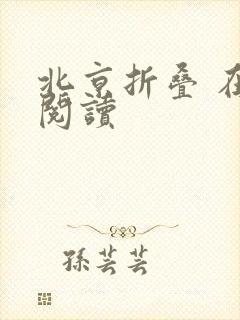 北京折叠 在
閱讀
孫芸芸